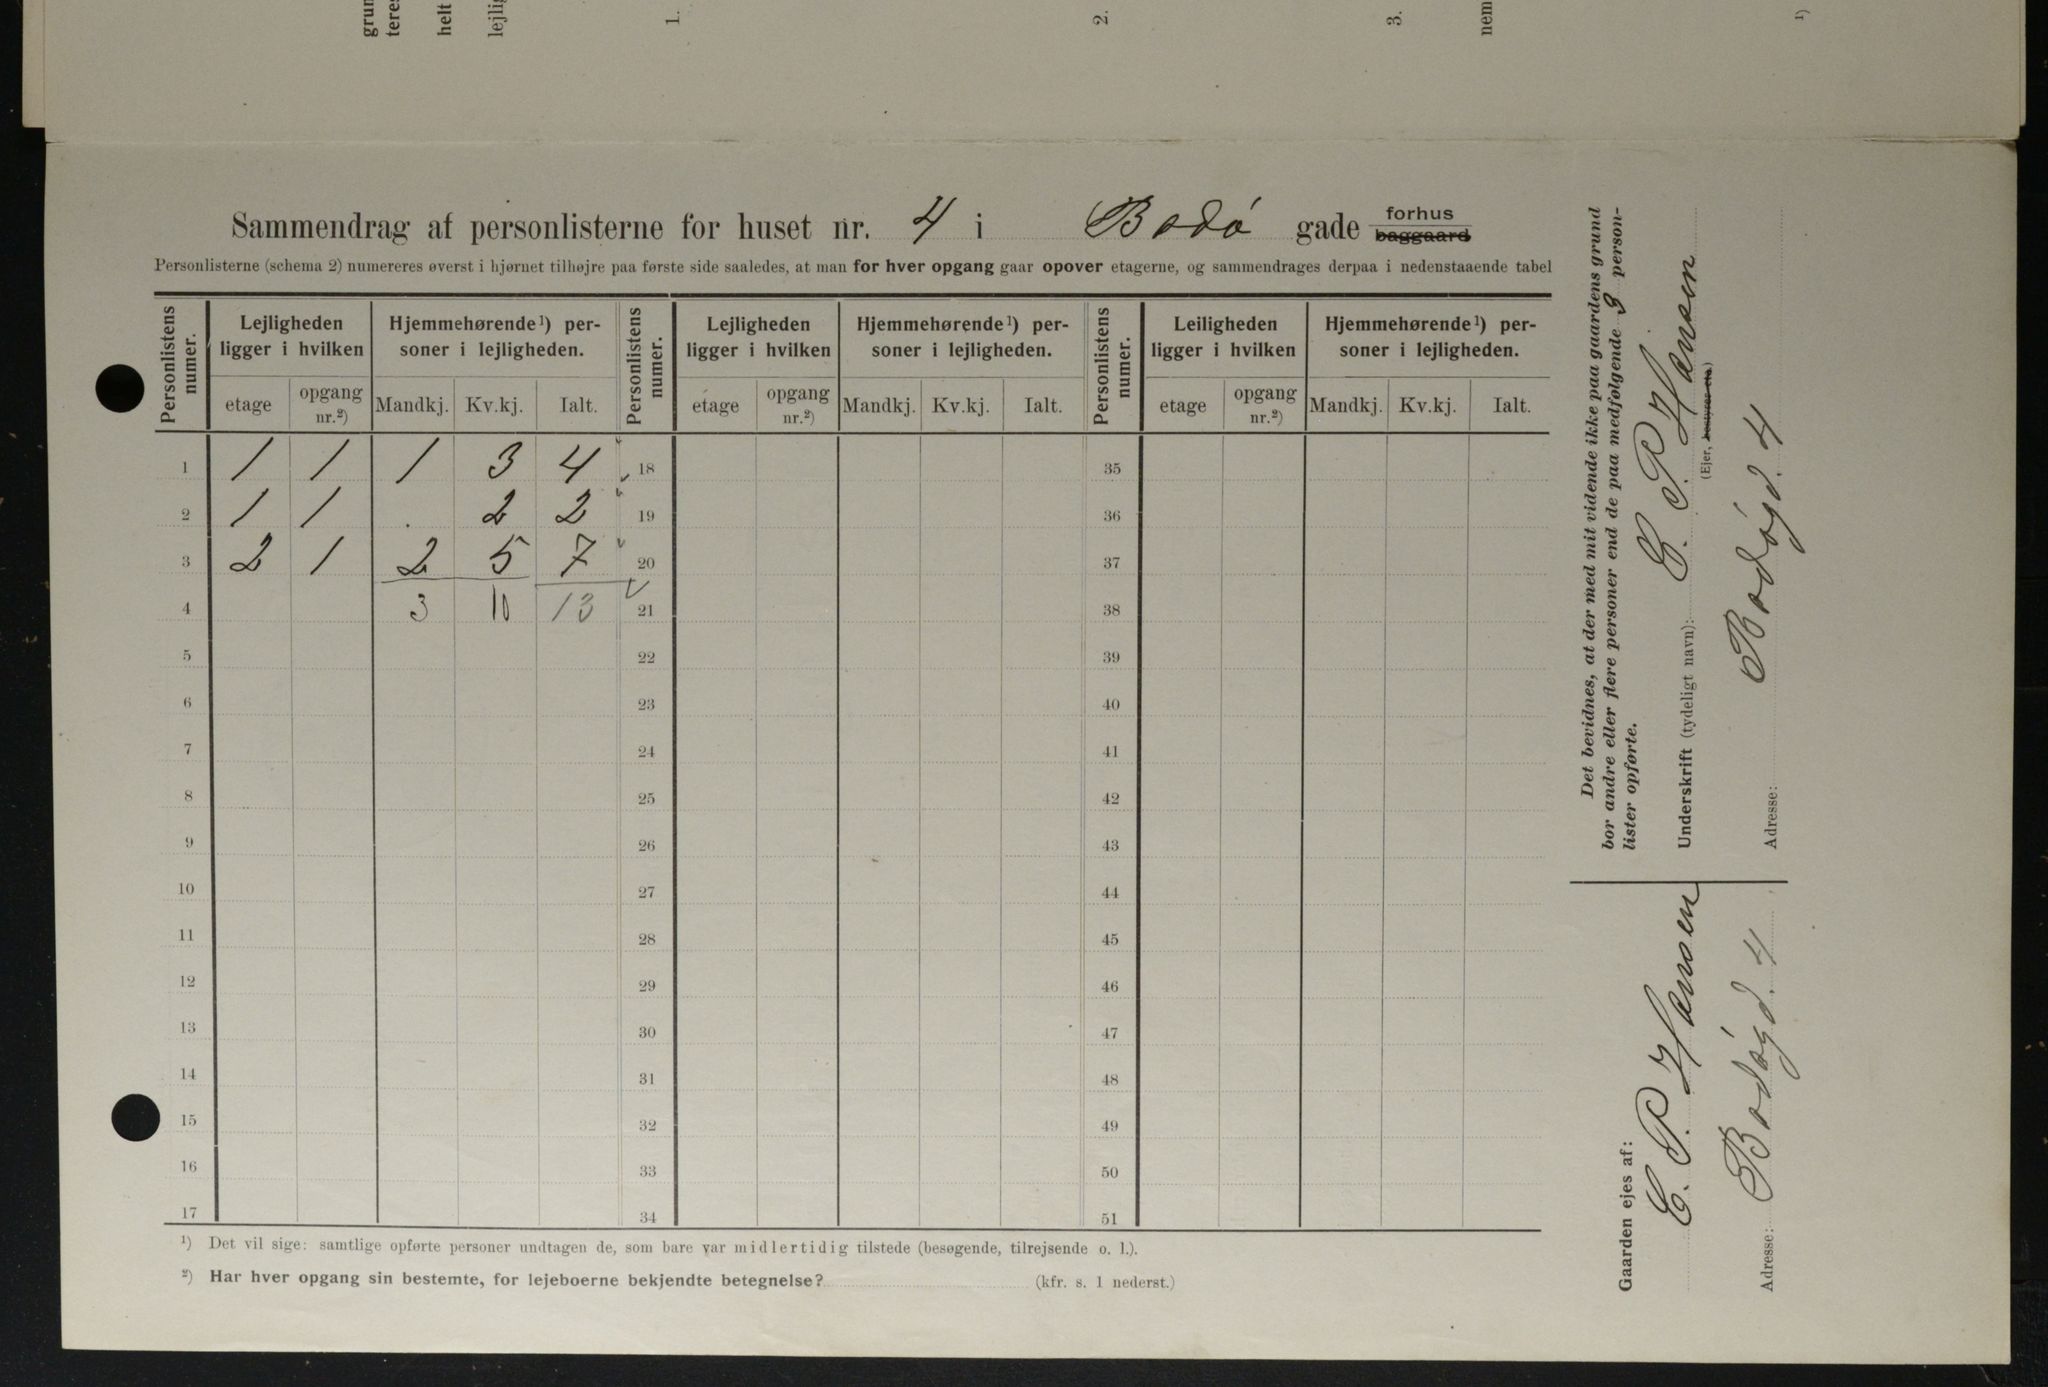 grun
teres
helt
lejlig
1.
2.
3.
nem
1)
Sammendrag af personlisterne for huset nr. 4 i Bodø gade forhus baggaard
Personlisterne (schema 2) numereres øverst i hjørnet tilhøjre paa første side saaledes, at man for hver opgang gaar opover etagerne, og sammendrages derpaa i nedenstaaende tabel
Personlistens numer. Lejligheden ligger i hvilken Hjemmehørende¹) personer i lejligheden. Personlistens numer. Lejligheden ligger i hvilken Hjemmehørende¹) personer i lejligheden. Personlistens numer. Leiligheden ligger i hvilken Hjemmehørende¹) personer i lejligheden.
etage opgang nr.²) Mandkj. Kv.kj. Ialt. etage opgang nr.²) Mandkj. Kv.kj. Ialt. etage opgang nr.²) Mandkj. Kv.kj. Ialt.
1 1 1 1 3 4 18 35
2 1 1 . 2 2 19 36
3 2 1 2 5 7 20 37
4 3 10 13 21 38
5 22 39
6 23 40
7 24 41
8 25 42
9 26 43
10 27 44
11 28 45
12 29 46
13 30 47
14 31 48
15 32 49
16 33 50
17 34 51
¹) Det vil sige: samtlige opførte personer undtagen de, som bare var midlertidig tilstede (besøgende, tilrejsende o. l.).
²) Har hver opgang sin bestemte, for lejeboerne bekjendte betegnelse? (kfr. s. 1 nederst.)
Det bevidnes, at der med mit vidende ikke paa gaardens grund
bor andre eller flere personer end de paa medfølgende 3 person-
lister opførte.
Underskrift (tydeligt navn): C. P. Hansen
(Ejer, bestyrer etc.)
Adresse: Bodøgd. 4
Gaarden ejes af:
C. P. Hansen
Adresse: Bodøgd. 4